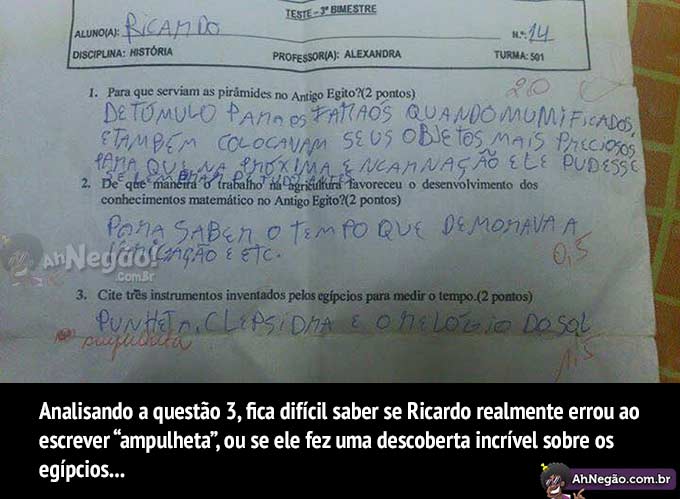 TESTE - 3º BIMESTRE
ALUNO(A): RICARDO Nº: 14
DISCIPLINA: HISTÓRIA PROFESSOR(A): ALEXANDRA TURMA: 501
1. Para que serviam as pirâmides no Antigo Egito?(2 pontos)
2,0
DE TÚMULO PARA OS FARAÓS QUANDO MUMIFICADOS,
E TAMBÉM COLOCAVAM SEUS OBJETOS MAIS PRECIOSOS
PARA QUE NA PRÓXIMA ENCARNAÇÃO ELE PUDESSE
SE LEMBRAR DE TUDO ANTES
2. De que maneira o trabalho na agricultura favoreceu o desenvolvimento dos
conhecimentos matemático no Antigo Egito?(2 pontos)
PARA SABER O TEMPO QUE DEMORAVA A
IRRIGAÇÃO E ETC.
0,5
3. Cite três instrumentos inventados pelos egípcios para medir o tempo.(2 pontos)
PUNHETA, CLEPSIDRA E O RELÓGIO DO SOL
ampulheta
1,5
AhNegão!
.com.br
Analisando a questão 3, fica difícil saber se Ricardo realmente errou ao
escrever “ampulheta”, ou se ele fez uma descoberta incrível sobre os
egípcios...
AhNegão.com.br